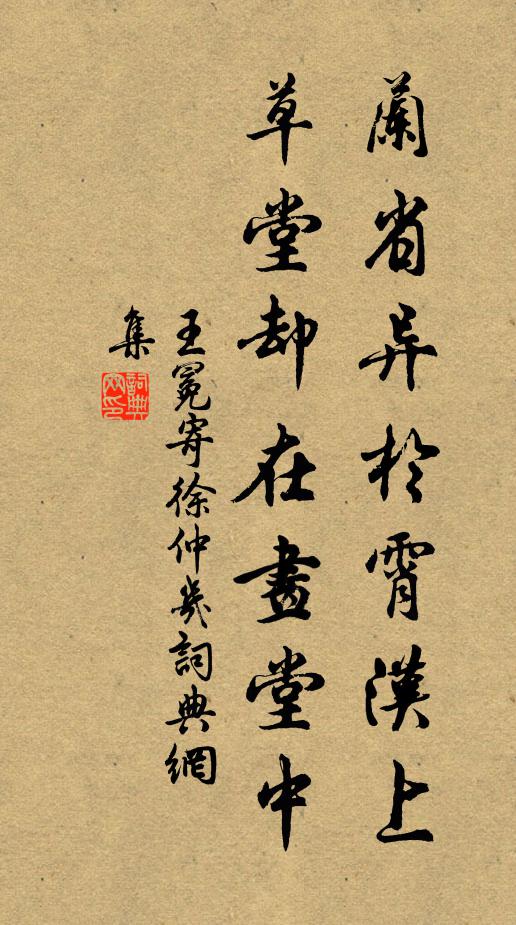 蘭省异於霄漢上
草堂却在畫堂中
王冕寄徐仲幾詞典網
集
詞典
网印